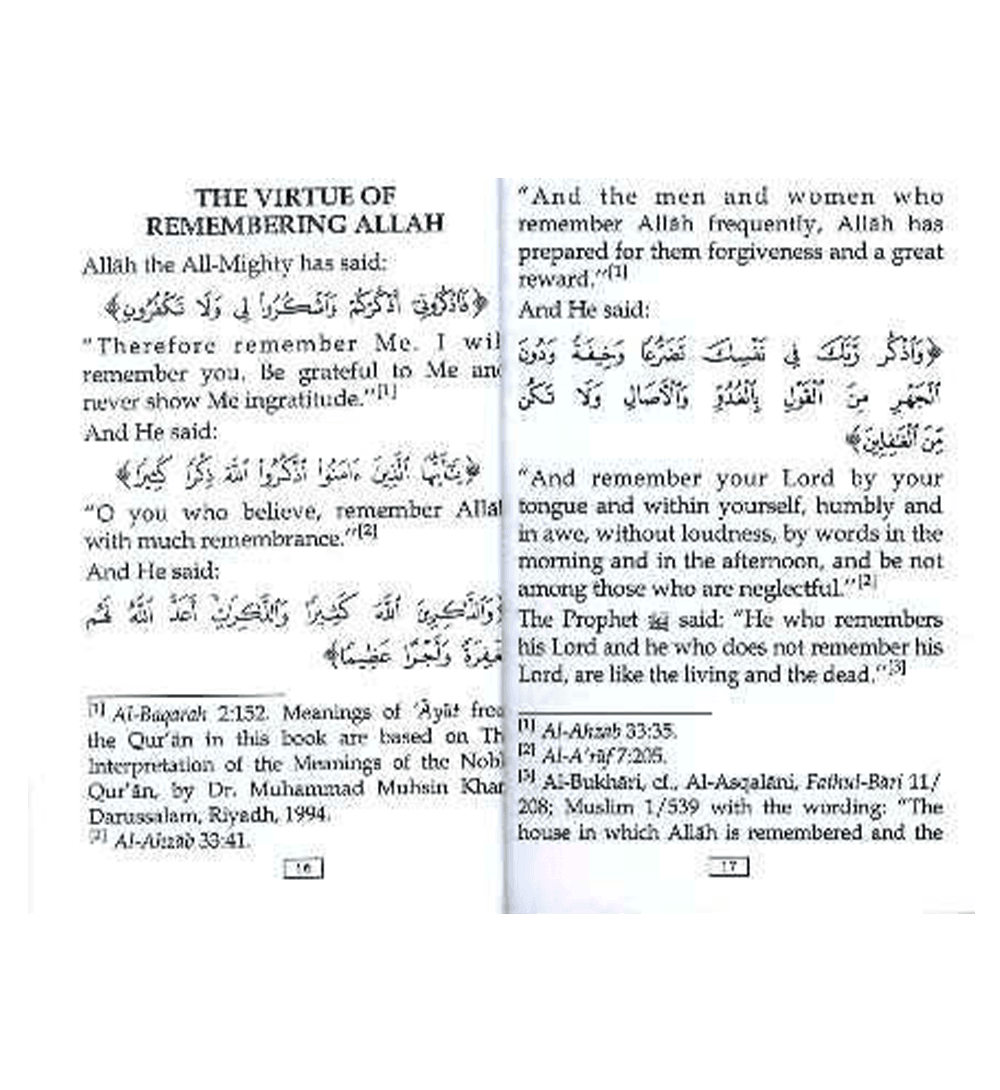 THE VIRTUE OF
REMEMBERING ALLAH
Allāh the All-Mighty has said:
﴿فَاذْكُرُونِي أَذْكُرْكُمْ وَاشْكُرُوا لِي وَلَا تَكْفُرُونِ﴾
"Therefore remember Me. I wil
remember you. Be grateful to Me and
never show Me ingratitude."[1]
And He said:
﴿يَٰٓأَيُّهَا ٱلَّذِينَ ءَامَنُوا۟ ٱذْكُرُوا۟ ٱللَّهَ ذِكْرًا كَثِيرًا﴾
"O you who believe, remember Allāh
with much remembrance."[2]
And He said:
﴿وَٱلذَّٰكِرِينَ ٱللَّهَ كَثِيرًا وَٱلذَّٰكِرَٰتِ أَعَدَّ ٱللَّهُ لَهُم
مَّغْفِرَةً وَأَجْرًا عَظِيمًا﴾
[1] Al-Baqarah 2:152. Meanings of 'Āyāt from
the Qur'ān in this book are based on Th
Interpretation of the Meanings of the Nobl
Qur'ān, by Dr. Muhammad Muhsin Khan
Darussalam, Riyadh, 1994.
[2] Al-Ahzāb 33:41.
16
"And the men and women who
remember Allāh frequently, Allāh has
prepared for them forgiveness and a great
reward."[1]
And He said:
﴿وَٱذْكُر رَّبَّكَ فِي نَفْسِكَ تَضَرُّعًا وَخِيفَةً وَدُونَ
ٱلْجَهْرِ مِنَ ٱلْقَوْلِ بِٱلْغُدُوِّ وَٱلْءَاصَالِ وَلَا تَكُن
مِّنَ ٱلْغَٰفِلِينَ﴾
"And remember your Lord by your
tongue and within yourself, humbly and
in awe, without loudness, by words in the
morning and in the afternoon, and be not
among those who are neglectful."[2]
The Prophet ﷺ said: "He who remembers
his Lord and he who does not remember his
Lord, are like the living and the dead."[3]
[1] Al-Ahzab 33:35.
[2] Al-A'rāf 7:205.
[3] Al-Bukhāri, cf., Al-Asqalāni, Fathul-Bari 11/
208; Muslim 1/539 with the wording: "The
house in which Allāh is remembered and the
17